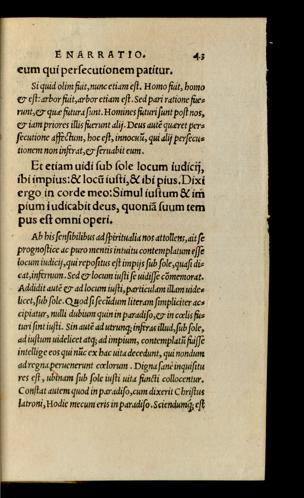 ENARRATIO. 43
eum qui persecutionem patitur.
Si quid olim fuit, nunc etiam est. Homo fuit, homo
& est: arbor fuit, arbor etiam est. Sed pari ratione fue-
runt, & quæ futura sunt. Homines futuri sunt post nos,
& iam priores illis fuerunt alij. Deus autē quæret per-
secutione affectum, hoc est, innocuū, qui alij persecu-
tionem non inferat, & seruabit eum.
Et etiam uidi sub sole locum iudicij,
ibi impius: & locū iusti, & ibi pius. Dixi
ergo in corde meo: Simul iustum & im̄
pium iudicabit deus, quoniā suum tem
pus est omni operi.
Ab his sensibilibus ad spiritualia nos attollens, ait se
prognostice ac puro mentis intuitu contemplatum esse
locum iudicij, qui repositus est impijs sub sole, quasi di-
cat, infernum. Sed & locum iusti se uidisse cōmemorat.
Addidit autē & ad locum iusti, particulam illam uide-
licet, sub sole. Quod si secūdum literam simpliciter ac-
cipiatur, nulli dubium quin in paradiso, & in cœlis fu-
turi sint iusti. Sin autē ad utrunq; inferas illud, sub sole,
ad iustum uidelicet atq; ad impium, contemplatū fuisse
intellige eos qui nūc ex hac uita decedunt, qui nondum
ad regna peruenerunt cœlorum. Digna sanè inquisitu
res est, ubinam sub sole iusti uita functi collocentur.
Constat autem quod in paradiso, cum dixerit Christus
latroni, Hodie mecum eris in paradiso. Sciendumq; est